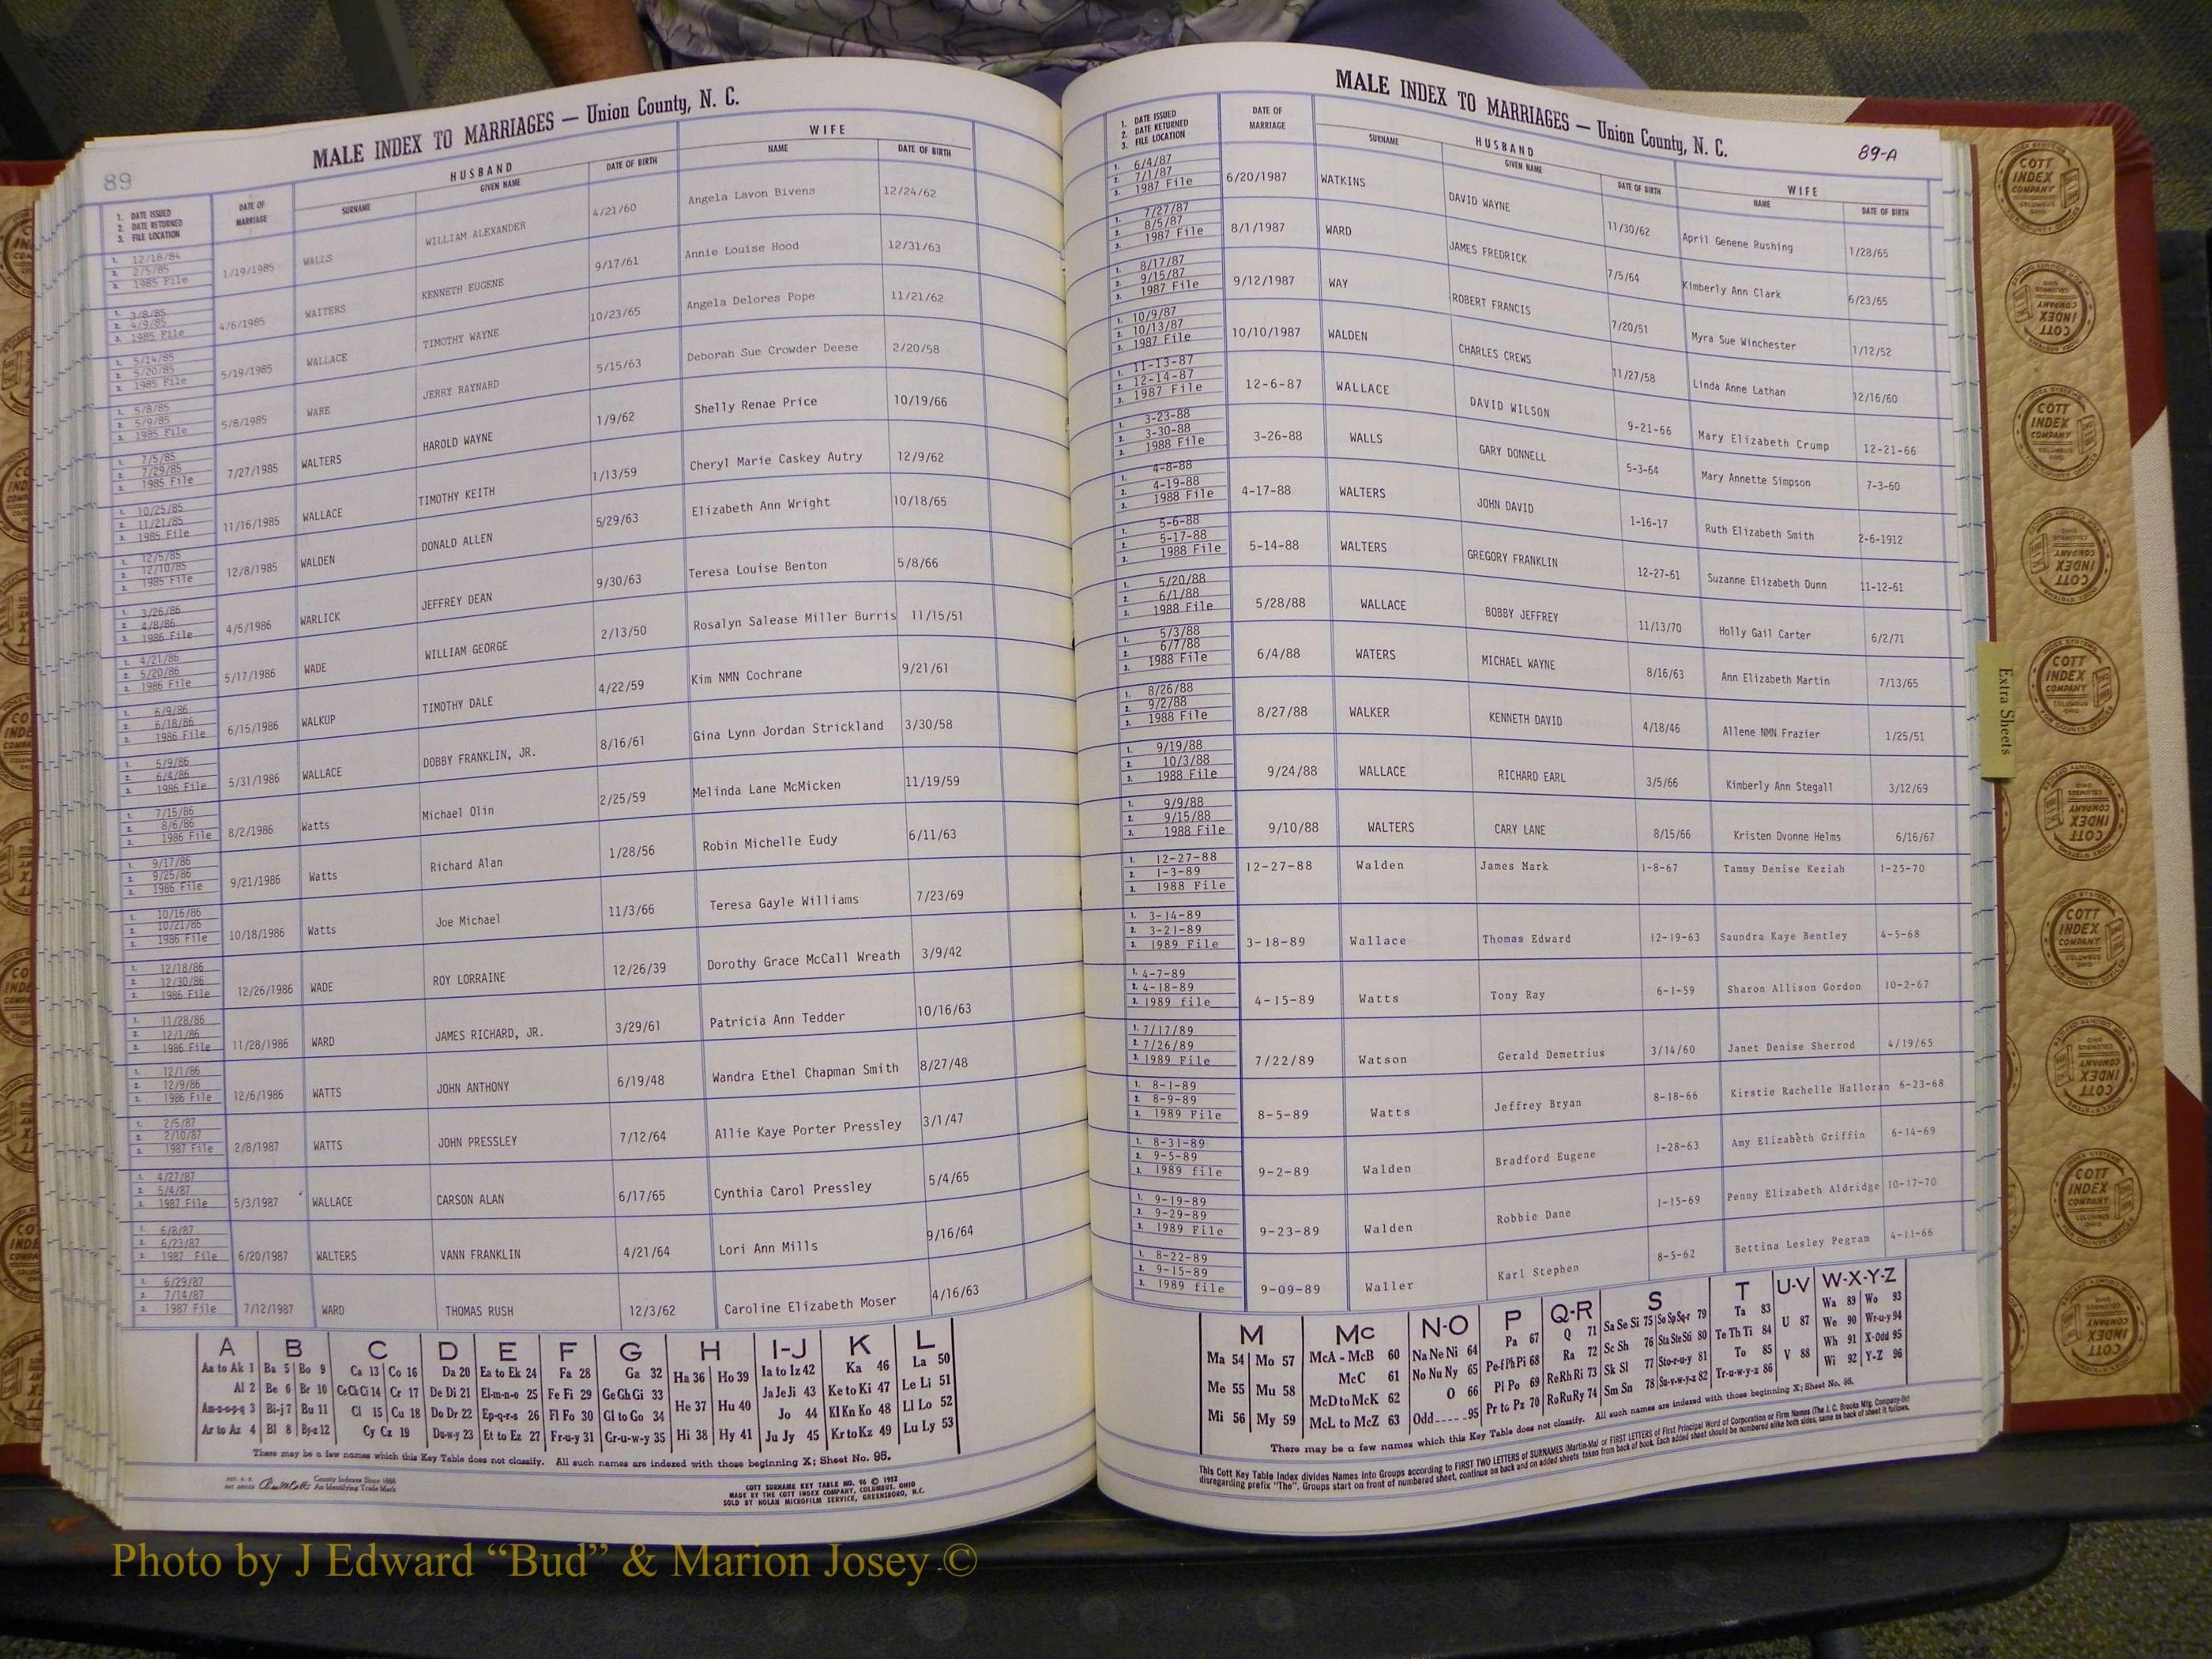 89
MALE INDEX TO MARRIAGES — Union County, N. C.
1. DATE ISSUED
2. DATE RETURNED
3. FILE LOCATION
DATE OF MARRIAGE
HUSBAND
SURNAME GIVEN NAME DATE OF BIRTH
WIFE
NAME DATE OF BIRTH
1. 12/18/84
2. 2/5/85
3. 1985 File
1/19/1985 WALLS WILLIAM ALEXANDER 4/21/60 Angela Lavon Bivens 12/24/62
1. 3/8/85
2. 4/9/85
3. 1985 File
4/6/1985 WAITERS KENNETH EUGENE 9/17/61 Annie Louise Hood 12/31/63
1. 5/14/85
2. 5/20/85
3. 1985 File
5/19/1985 WALLACE TIMOTHY WAYNE 10/23/65 Angela Delores Pope 11/21/62
1. 5/8/85
2. 5/9/85
3. 1985 File
5/8/1985 WARE JERRY RAYNARD 5/15/63 Deborah Sue Crowder Deese 2/20/58
1. 7/5/85
2. 7/29/85
3. 1985 File
7/27/1985 WALTERS HAROLD WAYNE 1/9/62 Shelly Renae Price 10/19/66
1. 10/25/85
2. 11/21/85
3. 1985 File
11/16/1985 WALLACE TIMOTHY KEITH 1/13/59 Cheryl Marie Caskey Autry 12/9/62
1. 12/5/85
2. 12/10/85
3. 1985 File
12/8/1985 WALDEN DONALD ALLEN 5/29/63 Elizabeth Ann Wright 10/18/65
1. 3/26/86
2. 4/8/86
3. 1986 File
4/5/1986 WARLICK JEFFREY DEAN 9/30/63 Teresa Louise Benton 5/8/66
1. 4/21/86
2. 5/20/86
3. 1986 File
5/17/1986 WADE WILLIAM GEORGE 2/13/50 Rosalyn Salease Miller Burris 11/15/51
1. 6/9/86
2. 6/18/86
3. 1986 File
6/15/1986 WALKUP TIMOTHY DALE 4/22/59 Kim NMN Cochrane 9/21/61
1. 5/9/86
2. 6/4/86
3. 1986 File
5/31/1986 WALLACE DOBBY FRANKLIN, JR. 8/16/61 Gina Lynn Jordan Strickland 3/30/58
1. 7/15/86
2. 8/6/86
3. 1986 File
8/2/1986 Watts Michael Olin 2/25/59 Melinda Lane McMicken 11/19/59
1. 9/17/86
2. 9/25/86
3. 1986 File
9/21/1986 Watts Richard Alan 1/28/56 Robin Michelle Eudy 6/11/63
1. 10/16/86
2. 10/21/86
3. 1986 File
10/18/1986 Watts Joe Michael 11/3/66 Teresa Gayle Williams 7/23/69
1. 12/18/86
2. 12/30/86
3. 1986 File
12/26/1986 WADE ROY LORRAINE 12/26/39 Dorothy Grace McCall Wreath 3/9/42
1. 11/28/86
2. 12/1/86
3. 1986 File
11/28/1986 WARD JAMES RICHARD, JR. 3/29/61 Patricia Ann Tedder 10/16/63
1. 12/1/86
2. 12/9/86
3. 1986 File
12/6/1986 WATTS JOHN ANTHONY 6/19/48 Wandra Ethel Chapman Smith 8/27/48
1. 2/5/87
2. 2/10/87
3. 1987 File
2/8/1987 WATTS JOHN PRESSLEY 7/12/64 Allie Kaye Porter Pressley 3/1/47
1. 4/27/87
2. 5/4/87
3. 1987 File
5/3/1987 WALLACE CARSON ALAN 6/17/65 Cynthia Carol Pressley 5/4/65
1. 6/8/87
2. 6/23/87
3. 1987 File
6/20/1987 WALTERS VANN FRANKLIN 4/21/64 Lori Ann Mills 9/16/64
1. 6/29/87
2. 7/14/87
3. 1987 File
7/12/1987 WARD THOMAS RUSH 12/3/62 Caroline Elizabeth Moser 4/16/63
A B C D E F G H I-J K L
Aa to Ak 1 Ba 5 Bo 9 Ca 13 Co 16 Da 20 Ea to Ek 24 Fa 28 Ga 32 Ha 36 Ho 39 Ia to Iz 42 Ka 46 La 50
Al 2 Be 6 Br 10 Ce Ch Ci 14 Cr 17 De Di 21 El-m-n-o 25 Fe Fi 29 Ge Gh Gi 33 He 37 Hu 40 Ja Je Ji 43 Ke to Ki 47 Le Li 51
Am-n-o-p-q 3 Bi-j 7 Bu 11 Cl 15 Cu 18 Do Dr 22 Ep-q-r-s 26 Fl Fo 30 Gl to Go 34 Jo 44 Kl Kn Ko 48 Ll Lo 52
Ar to Az 4 Bl 8 By-z 12 Cy Cz 19 Du-w-y 23 Et to Ez 27 Fr-u-y 31 Gr-u-w-y 35 Hi 38 Hy 41 Ju Jy 45 Kr to Kz 49 Lu Ly 53
There may be a few names which this Key Table does not classify. All such names are indexed with those beginning X; Sheet No. 95.
County Indexes Since 1888
An Identifying Trade Mark
COTT SURNAME KEY TABLE NO. 96 © 1952
MADE BY THE COTT INDEX COMPANY, COLUMBUS, OHIO
SOLD BY NOLAN MICROFILM SERVICE, GREENSBORO, N.C.
MALE INDEX TO MARRIAGES — Union County, N. C.
89-A
1. DATE ISSUED
2. DATE RETURNED
3. FILE LOCATION
DATE OF MARRIAGE
HUSBAND
SURNAME GIVEN NAME DATE OF BIRTH
WIFE
NAME DATE OF BIRTH
1. 6/4/87
2. 7/1/87
3. 1987 File
6/20/1987 WATKINS DAVID WAYNE 11/30/62 April Genene Rushing 1/28/65
1. 7/27/87
2. 8/5/87
3. 1987 File
8/1/1987 WARD JAMES FREDRICK 7/5/64 Kimberly Ann Clark 6/23/65
1. 8/17/87
2. 9/15/87
3. 1987 File
9/12/1987 WAY ROBERT FRANCIS 7/20/51 Myra Sue Winchester 1/12/52
1. 10/9/87
2. 10/13/87
3. 1987 File
10/10/1987 WALDEN CHARLES CREWS 11/27/58 Linda Anne Lathan 12/16/60
1. 11-13-87
2. 12-14-87
3. 1987 File
12-6-87 WALLACE DAVID WILSON 9-21-66 Mary Elizabeth Crump 12-21-66
1. 3-23-88
2. 3-30-88
3. 1988 File
3-26-88 WALLS GARY DONNELL 5-3-64 Mary Annette Simpson 7-3-60
1. 4-8-88
2. 4-19-88
3. 1988 File
4-17-88 WALTERS JOHN DAVID 1-16-17 Ruth Elizabeth Smith 2-6-1912
1. 5-6-88
2. 5-17-88
3. 1988 File
5-14-88 WALTERS GREGORY FRANKLIN 12-27-61 Suzanne Elizabeth Dunn 11-12-61
1. 5/20/88
2. 6/1/88
3. 1988 File
5/28/88 WALLACE BOBBY JEFFREY 11/13/70 Holly Gail Carter 6/2/71
1. 5/3/88
2. 6/7/88
3. 1988 File
6/4/88 WATERS MICHAEL WAYNE 8/16/63 Ann Elizabeth Martin 7/13/65
1. 8/26/88
2. 9/2/88
3. 1988 File
8/27/88 WALKER KENNETH DAVID 4/18/46 Allene NMN Frazier 1/25/51
1. 9/19/88
2. 10/3/88
3. 1988 File
9/24/88 WALLACE RICHARD EARL 3/5/66 Kimberly Ann Stegall 3/12/69
1. 9/9/88
2. 9/15/88
3. 1988 File
9/10/88 WALTERS CARY LANE 8/15/66 Kristen Dvonne Helms 6/16/67
1. 12-27-88
2. 1-3-89
3. 1988 File
12-27-88 Walden James Mark 1-8-67 Tammy Denise Keziah 1-25-70
1. 3-14-89
2. 3-21-89
3. 1989 File
3-18-89 Wallace Thomas Edward 12-19-63 Saundra Kaye Bentley 4-5-68
1. 4-7-89
2. 4-18-89
3. 1989 file
4-15-89 Watts Tony Ray 6-1-59 Sharon Allison Gordon 10-2-67
1. 7/17/89
2. 7/26/89
3. 1989 File
7/22/89 Watson Gerald Demetrius 3/14/60 Janet Denise Sherrod 4/19/65
1. 8-1-89
2. 8-9-89
3. 1989 File
8-5-89 Watts Jeffrey Bryan 8-18-66 Kirstie Rachelle Halloran 6-23-68
1. 8-31-89
2. 9-5-89
3. 1989 file
9-2-89 Walden Bradford Eugene 1-28-63 Amy Elizabeth Griffin 6-14-69
1. 9-19-89
2. 9-29-89
3. 1989 File
9-23-89 Walden Robbie Dane 1-15-69 Penny Elizabeth Aldridge 10-17-70
1. 8-22-89
2. 9-15-89
3. 1989 file
9-09-89 Waller Karl Stephen 8-5-62 Bettina Lesley Pegram 4-11-66
M Mc N-O P Q-R S T U-V W-X-Y-Z
Ma 54 Mo 57 McA - McB 60 Na Ne Ni 64 Pa 67 Q 71 Sa Se Si 75 So Sp Sq-r 79 Ta 83 U 87 Wa 89 Wo 93
McC 61 No Nu Ny 65 Pe-f Ph Pi 68 Ra 72 Sc Sh 76 Sta Ste Sti 80 Te Th Ti 84 We 90 Wr-u-y 94
Me 55 Mu 58 McD to McK 62 O 66 Pl Po 69 Re Rh Ri 73 Sk Sl 77 Sto-r-u-y 81 To 85 V 88 Wh 91 X-Odd 95
Mi 56 My 59 McL to McZ 63 Odd-----95 Pr to Pz 70 Ro Ru Ry 74 Sm Sn 78 Su-v-w-y-z 82 Tr-u-w-y-z 86 Wi 92 Y-Z 96
There may be a few names which this Key Table does not classify. All such names are indexed with those beginning X; Sheet No. 95.
This Cott Key Table Index divides Names into Groups according to FIRST TWO LETTERS of SURNAMES (Martin-Ma) or FIRST LETTERS of First Principal Word of Corporation or Firm Names (The J. C. Brooks Mfg. Company-Br)
disregarding prefix "The". Groups start on front of numbered sheet, continue on back and on added sheets taken from back of book. Each added sheet should be numbered alike both sides, same as back of sheet it follows.
Extra Sheets
COTT INDEX COMPANY COLUMBUS OHIO
Photo by J Edward “Bud” & Marion Josey ©